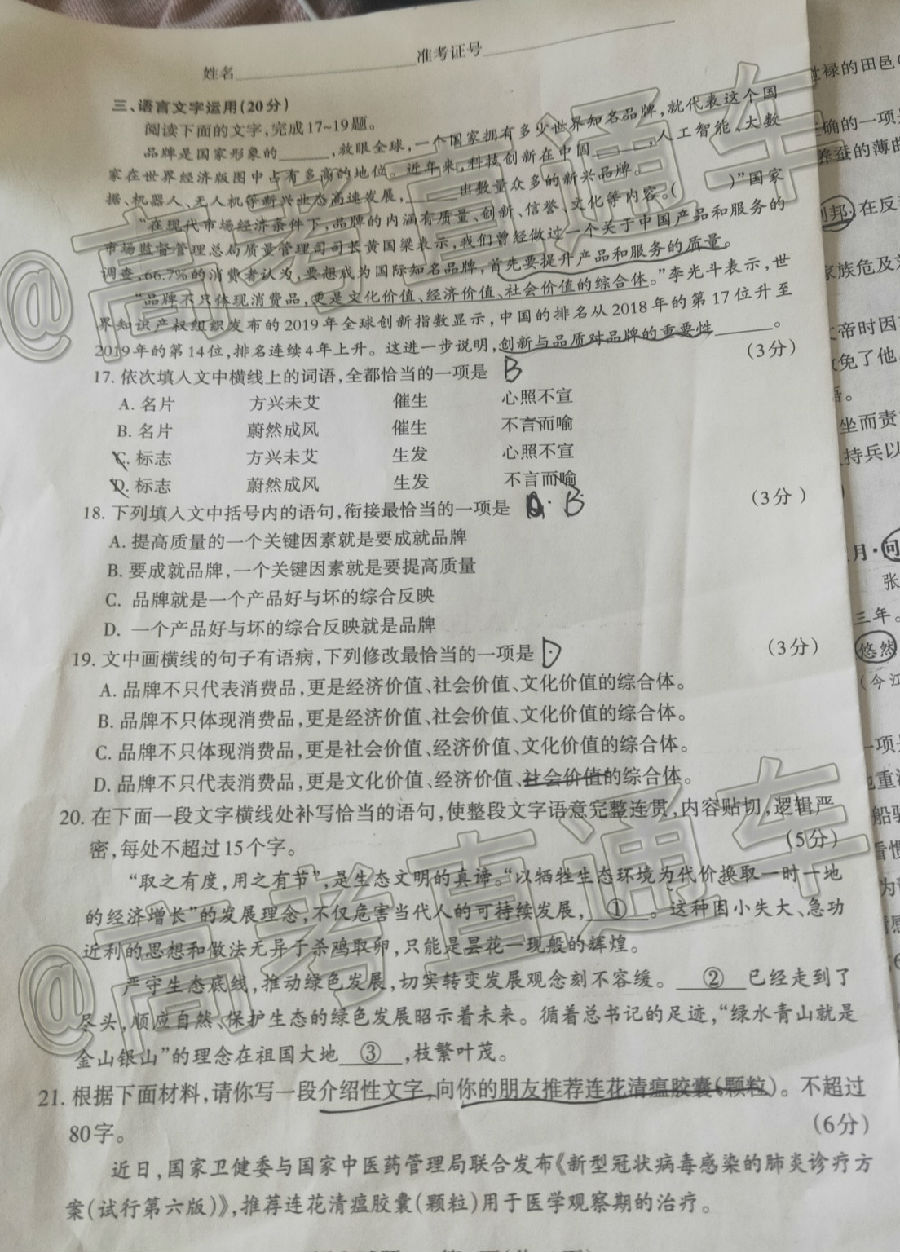 姓名 准考证号
三、语言文字运用(20分)
阅读下面的文字,完成17~19题。
品牌是国家形象的______,放眼全球,一个国家拥有多少世界知名品牌,就代表这个国
家在世界经济版图中占有多高的地位。近年来,科技创新在中国______,人工智能、大数
据、机器人、无人机等新兴业态高速发展,______出数量众多的新兴品牌。
“在现代市场经济条件下,品牌的内涵有质量、创新、信誉、文化等内容。( )”国家
市场监督管理总局质量管理司司长黄国梁表示,我们曾经做过一个关于中国产品和服务的
调查,66.7%的消费者认为,要想成为国际知名品牌,首先要提升产品和服务的质量。
“品牌不只体现消费品,更是文化价值、经济价值、社会价值的综合体。”李光斗表示,世
界知识产权组织发布的2019年全球创新指数显示,中国的排名从2018年的第17位升至
2019年的第14位,排名连续4年上升。这进一步说明,创新与品质对品牌的重要性______。
17. 依次填入文中横线上的词语,全都恰当的一项是 B (3分)
A. 名片 方兴未艾 催生 心照不宣
B. 名片 蔚然成风 催生 不言而喻
C. 标志 方兴未艾 生发 心照不宣
D. 标志 蔚然成风 生发 不言而喻
18. 下列填入文中括号内的语句,衔接最恰当的一项是 B (3分)
A. 提高质量的一个关键因素就是要成就品牌
B. 要成就品牌,一个关键因素就是要提高质量
C. 品牌就是一个产品好与坏的综合反映
D. 一个产品好与坏的综合反映就是品牌
19. 文中画横线的句子有语病,下列修改最恰当的一项是 D (3分)
A. 品牌不只代表消费品,更是经济价值、社会价值、文化价值的综合体。
B. 品牌不只体现消费品,更是经济价值、社会价值、文化价值的综合体。
C. 品牌不只体现消费品,更是社会价值、经济价值、文化价值的综合体。
D. 品牌不只代表消费品,更是文化价值、经济价值、社会价值的综合体。
20. 在下面一段文字横线处补写恰当的语句,使整段文字语意完整连贯,内容贴切,逻辑严
密,每处不超过15个字。 (5分)
“取之有度,用之有节”,是生态文明的真谛。“以牺牲生态环境为代价换取一时一地
的经济增长”的发展理念,不仅危害当代人的可持续发展,__①__。这种因小失大、急功
近利的思想和做法无异于杀鸡取卵,只能是昙花一现般的辉煌。
严守生态底线,推动绿色发展,切实转变发展观念刻不容缓。__②__已经走到了
尽头,顺应自然、保护生态的绿色发展昭示着未来。循着总书记的足迹,“绿水青山就是
金山银山”的理念在祖国大地__③__,枝繁叶茂。
21. 根据下面材料,请你写一段介绍性文字,向你的朋友推荐连花清瘟胶囊(颗粒)。不超过
80字。 (6分)
近日,国家卫健委与国家中医药管理局联合发布《新型冠状病毒感染的肺炎诊疗方
案(试行第六版)》,推荐连花清瘟胶囊(颗粒)用于医学观察期的治疗。
@高考直通车
@高考直通车
禄的田邑
确的一项
在反
家族危及
帝时因
免了他
坐而责
持兵以
月·问
张
三年。
悠然
(今江
一项